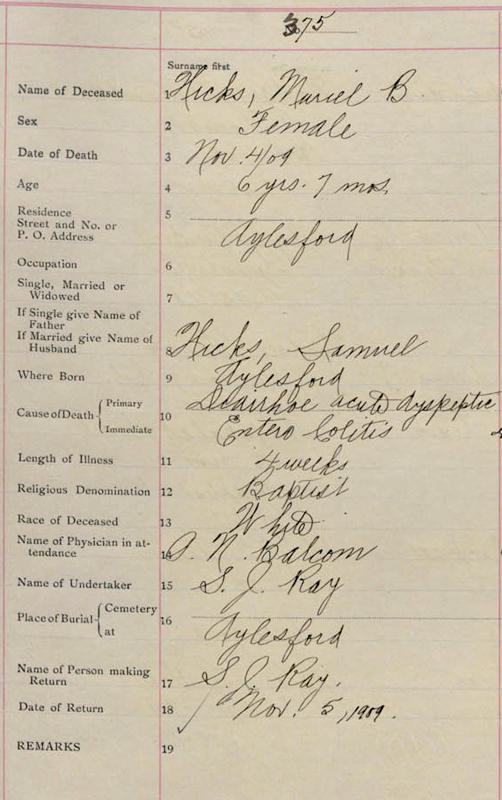 375
Surname first
Name of Deceased 1 Hicks, Muriel B
Sex 2 Female
Date of Death 3 Nov. 4/09
Age 4 6 yrs. 7 mos.
Residence
Street and No. or
P. O. Address 5 Aylesford
Occupation 6
Single, Married or
Widowed 7
If Single give Name of
Father
If Married give Name of
Husband 8 Hicks, Samuel
Where Born 9 Aylesford
Cause of Death Primary Diarrhoe acute dyspeptic
10
Immediate Entero Colitis
Length of Illness 11 4 weeks
Religious Denomination 12 Baptist
Race of Deceased 13 White
Name of Physician in at-
tendance 14 N. Balcom
Name of Undertaker 15 S. J. Ray
Place of Burial Cemetery
at 16 Aylesford
Name of Person making
Return 17 S. J. Ray.
Date of Return 18 Nov. 5, 1909.
REMARKS 19